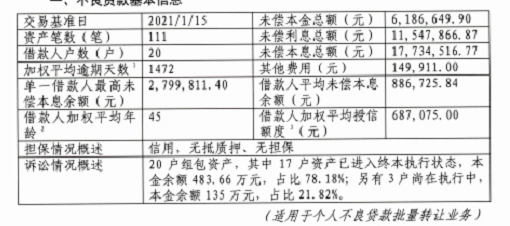 一、不良贷款基本信息
交易基准日 2021/1/15 未偿本金总额（元） 6,186,649.90
资产笔数（笔） 111 未偿利息总额（元） 11,547,866.87
借款人户数（户） 20 未偿本息总额（元） 17,734,516.77
加权平均逾期天数¹ 1472 其他费用（元） 149,911.00
单一借款人最高未偿本息余额（元） 2,799,811.40 借款人平均未偿本息余额（元） 886,725.84
借款人加权平均年龄² 45 借款人加权平均授信额度³（元） 687,075.00
担保情况概述 信用，无抵质押、无担保
诉讼情况概述 20 户组包资产，其中 17 户资产已进入终本执行状态，本
金余额 483.66 万元，占比 78.18%；另有 3 户尚在执行中，
本金余额 135 万元，占比 21.82%。
（适用于个人不良贷款批量转让业务）